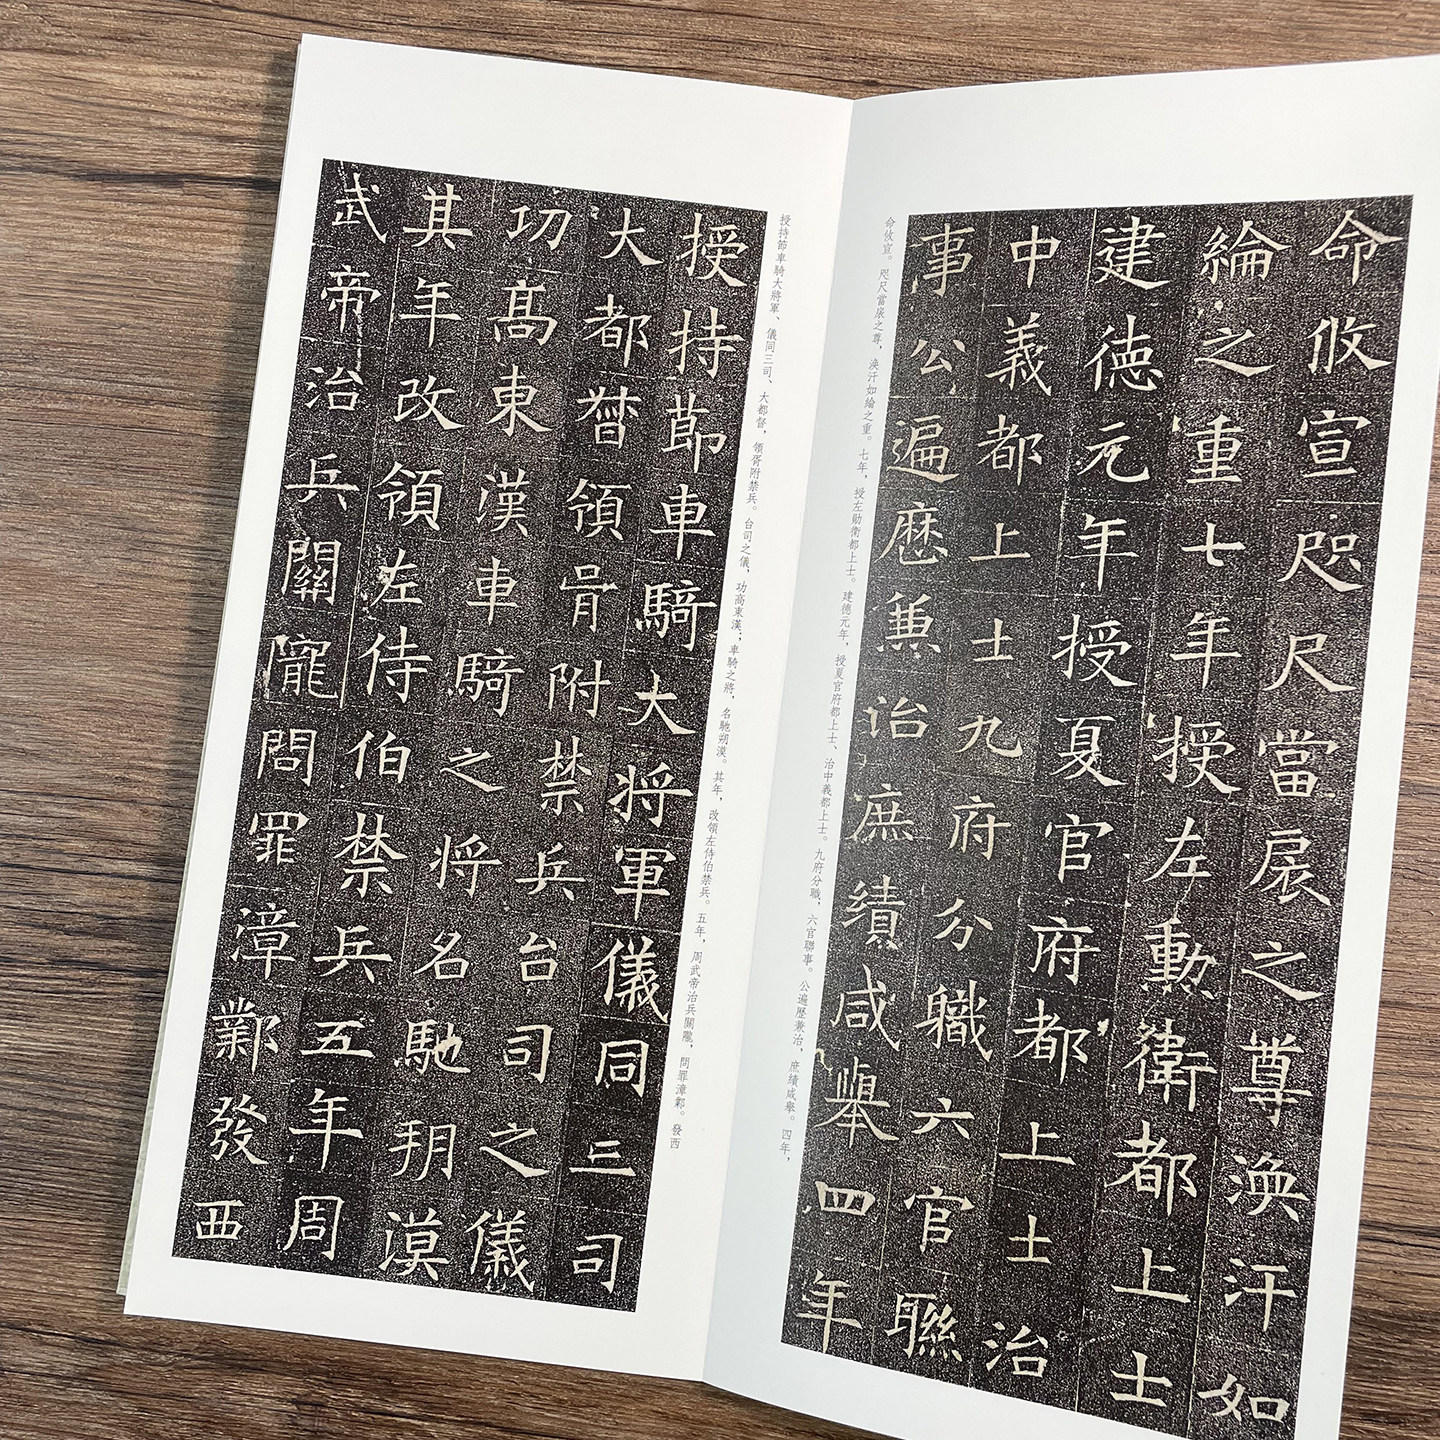 命攸宣咫尺當扆之尊渙汗如
綸之重七年授左勳衛都上士
建德元年授夏官府都上士治
中義都上士九府分職六官聯
事公遍歷兼治庶績咸舉四年
命攸宣。咫尺當扆之尊，渙汗如綸之重。七年，授左勛衛都上士。建德元年，授夏官府都上士、治中義都上士。九府分職，六官聯事。公遍歷兼治，庶績咸舉。四年，
授持節車騎大將軍、儀同三司、大都督，領胥附禁兵。台司之儀，功高東漢；車騎之將，名馳朔漠。其年，改領左侍伯禁兵。五年，周武帝治兵關隴，問罪漳鄴。發西
授持節車騎大将軍儀同三司
大都督領胥附禁兵台司之儀
功髙東漢車騎之将名馳朔漠
其年改領左侍伯禁兵五年周
武帝治兵關隴問罪漳鄴發西